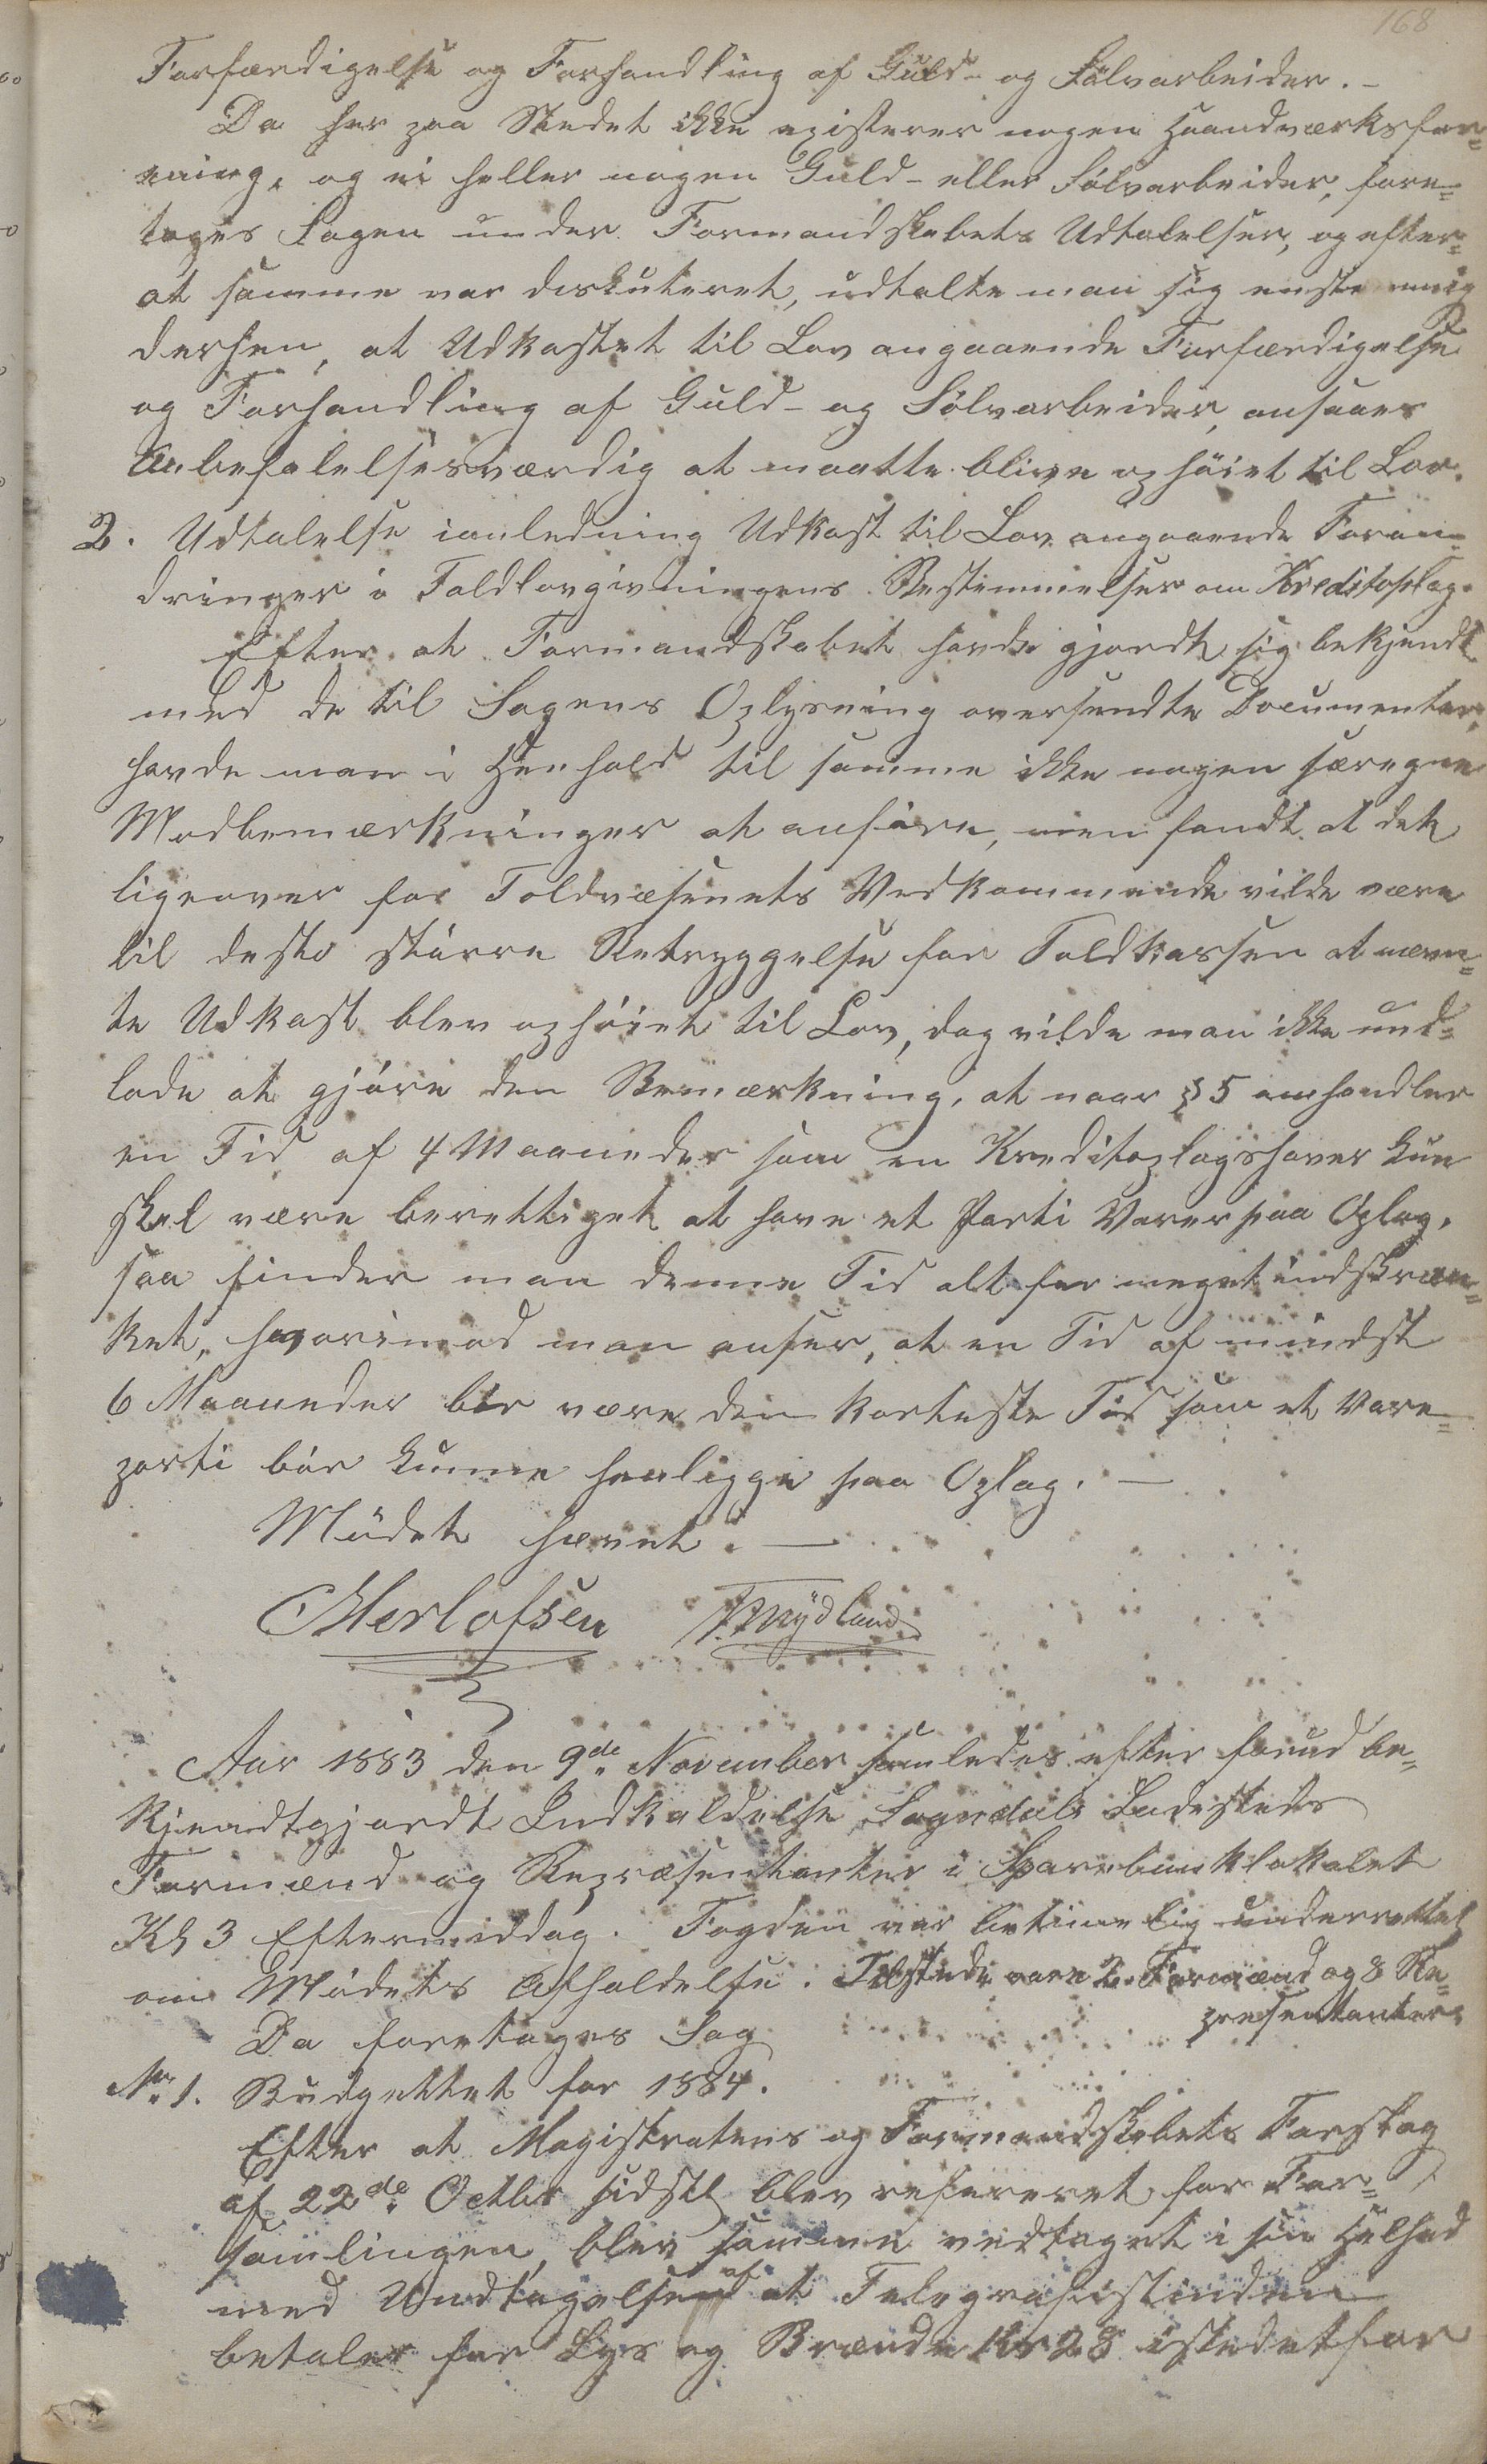 168
Forfærdigelse og Forhandling af Guld- og Sölvarbeider.-
Da her paa Stedet ikke existerer nogen Haandværksfor=
ening, og ei heller nogen Guld- eller Sölvarbeider, fore=
toges Sagen under Formandskabets Udtalelser, og efter=
at samme var diskuteret, udtalte man sig enstemmig
derhen, at Udkastet til Lov angaaende Forfærdigelse
og Forhandling af Guld- og Sölvarbeider, ansaaes
Anbefalelsesværdig at maatte blive ophöiet til Lov.
2. Udtalelse ianledning Udkast til Lov angaaende Foran=
dringer i Toldlovgivningens Bestemmelser om Kreditoplag.
Efter at Formandskabet havde gjordt sig bekjendt
med de til Sagens Oplysning oversendte Documenter,
havde man i Henhold til samme ikke nogen særegne
Modbemærkninger at anföre, men fandt at det
ligeover for Toldvæsenets Vedkommende vilde være
til desto större Betryggelse for Toldkassen at nævn=
te Udkast blev ophöiet til Lov, dog vilde man ikke und=
lade at gjöre den Bemærkning, at naar § 5 omhandler
en Tid af 4 Maaneder som en Kreditoplagshaver kun
skal være berettiget at have et Parti Varer paa Oplag,
saa finder man denne Tid alt for meget indskræn=
ket, hvorimod man anser, at en Tid af mindst
6 Maaneder bör være den korteste Tid som et Vare=
parti bör kunne henligge paa Oplag. —
Mödet hævet. —
CHerlofsen T. Mydland
Aar 1883 den 9de November samledes efter forud be=
kjendtgjordt Indkaldelse Sogndals Ladesteds
Formænd og Repræsentanter i Sparebanklokalet
Kl 3 Eftermiddag. Fogden var betimelig underrettet
om Mödets Afholdelse. Tilstede vare 2 Formænd og 8 Re=
presentanter.
Da foretoges Sag
No 1. Budgettet for 1884.
Efter at Magistratens og Formandskabets Forslag
af 22de Octbr sidstl blev refereret for For=
samlingen, blev samme vedtaget i sin Helhed
med Undtagelsen af at Telegrafistinden
betaler for Lys og Brænde Kr 28 istedetfor